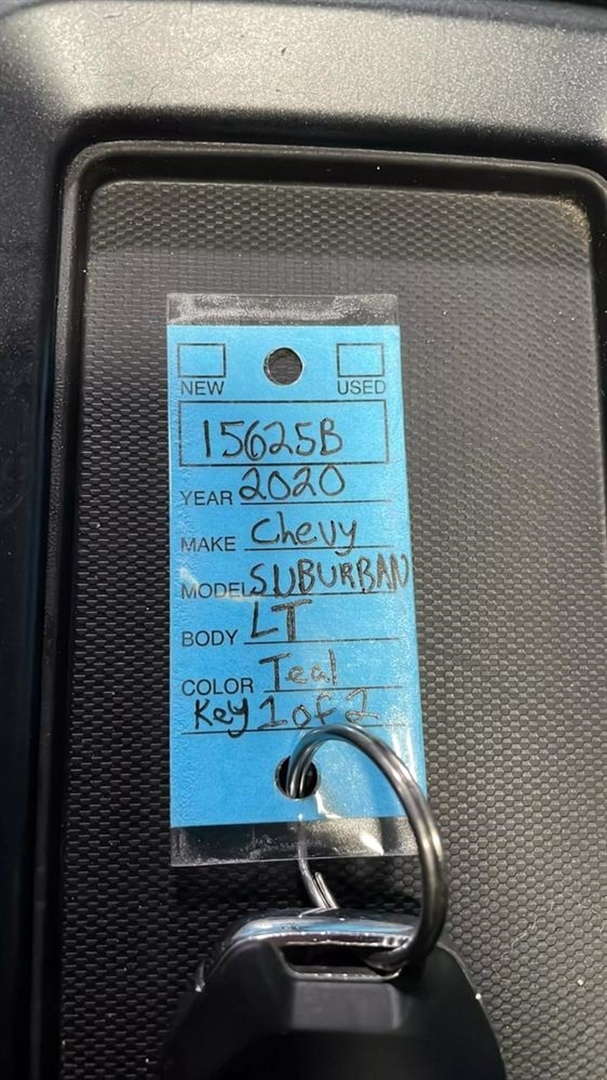 NEW USED
15625B
YEAR 2020
MAKE Chevy
MODEL SUBURBAN
BODY LT
COLOR Teal
Key 1 of 2